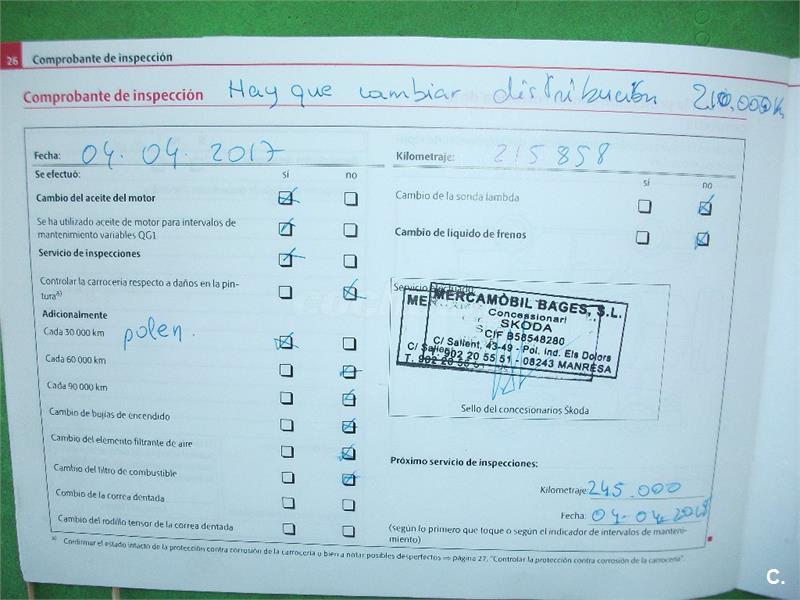 26 Comprobante de inspección
Comprobante de inspección Hay que cambiar distribución 210.000 K
Fecha: 04.04.2017
Se efectuó: sí no
Cambio del aceite del motor
Se ha utilizado aceite de motor para intervalos de
mantenimiento variables QG1
Servicio de inspecciones
Controlar la carrocería respecto a daños en la pin-
tura a)
Adicionalmente
Cada 30 000 km polen.
Cada 60 000 km
Cada 90 000 km
Cambio de bujías de encendido
Cambio del elemento filtrante de aire
Cambio del filtro de combustible
Combio de la correa dentada
Cambio del rodillo tensor de la correa dentada
Kilometraje: 215858
sí no
Cambio de la sonda lambda
Cambio de líquido de frenos
MERCAMÒBIL BAGES, S.L.
Concessionari
SKODA
CIF B58548280
C/ Sallent, 43-49 - Pol. Ind. Els Dolors
T. 902 20 55 51 - 08243 MANRESA
Sello del concesionarios Škoda
Próximo servicio de inspecciones:
Kilometraje: 245.000
Fecha: 04-04-2018
(según lo primero que toque o según el indicador de intervalos de manteni-
miento)
a) Confirmar el estado intacto de la protección contra corrosión de la carrocería o bien a notar posibles desperfectos ⇒ página 27, "Controlar la protección contra corrosión de la carrocería".
C.